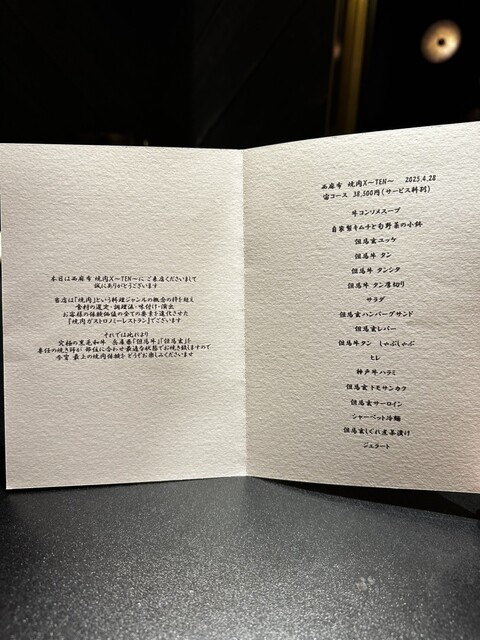 本日は西麻布 焼肉X〜TEN〜にご来店くださいまして
誠にありがとうございます
当店は「焼肉」という料理ジャンルの概念の枠を超え
食材の選定・調理法・味付け・演出
お客様の体験価値の全ての要素を進化させた
『焼肉ガストロノミーレストラン』でございます
それでは此れより
究極の黒毛和牛 兵庫県「但馬牛」「但馬玄」を
専任の焼き師が 部位に合わせ最適な状態でお焼き致しますので
今宵 最上の焼肉体験を どうぞお楽しみくださいませ
西麻布 焼肉X〜TEN〜 2025.4.28
宙コース 38,500円(サービス料別)
牛コンソメスープ
自家製キムチと旬野菜の小鉢
但馬玄ユッケ
但馬牛 タン
但馬牛 タンシタ
但馬牛 タン厚切り
サラダ
但馬玄ハンバーグサンド
但馬玄レバー
但馬牛タン しゃぶしゃぶ
ヒレ
神戸牛ハラミ
但馬玄トモサンカク
但馬玄サーロイン
シャーベット冷麺
但馬玄しぐれ煮茶漬け
ジェラート